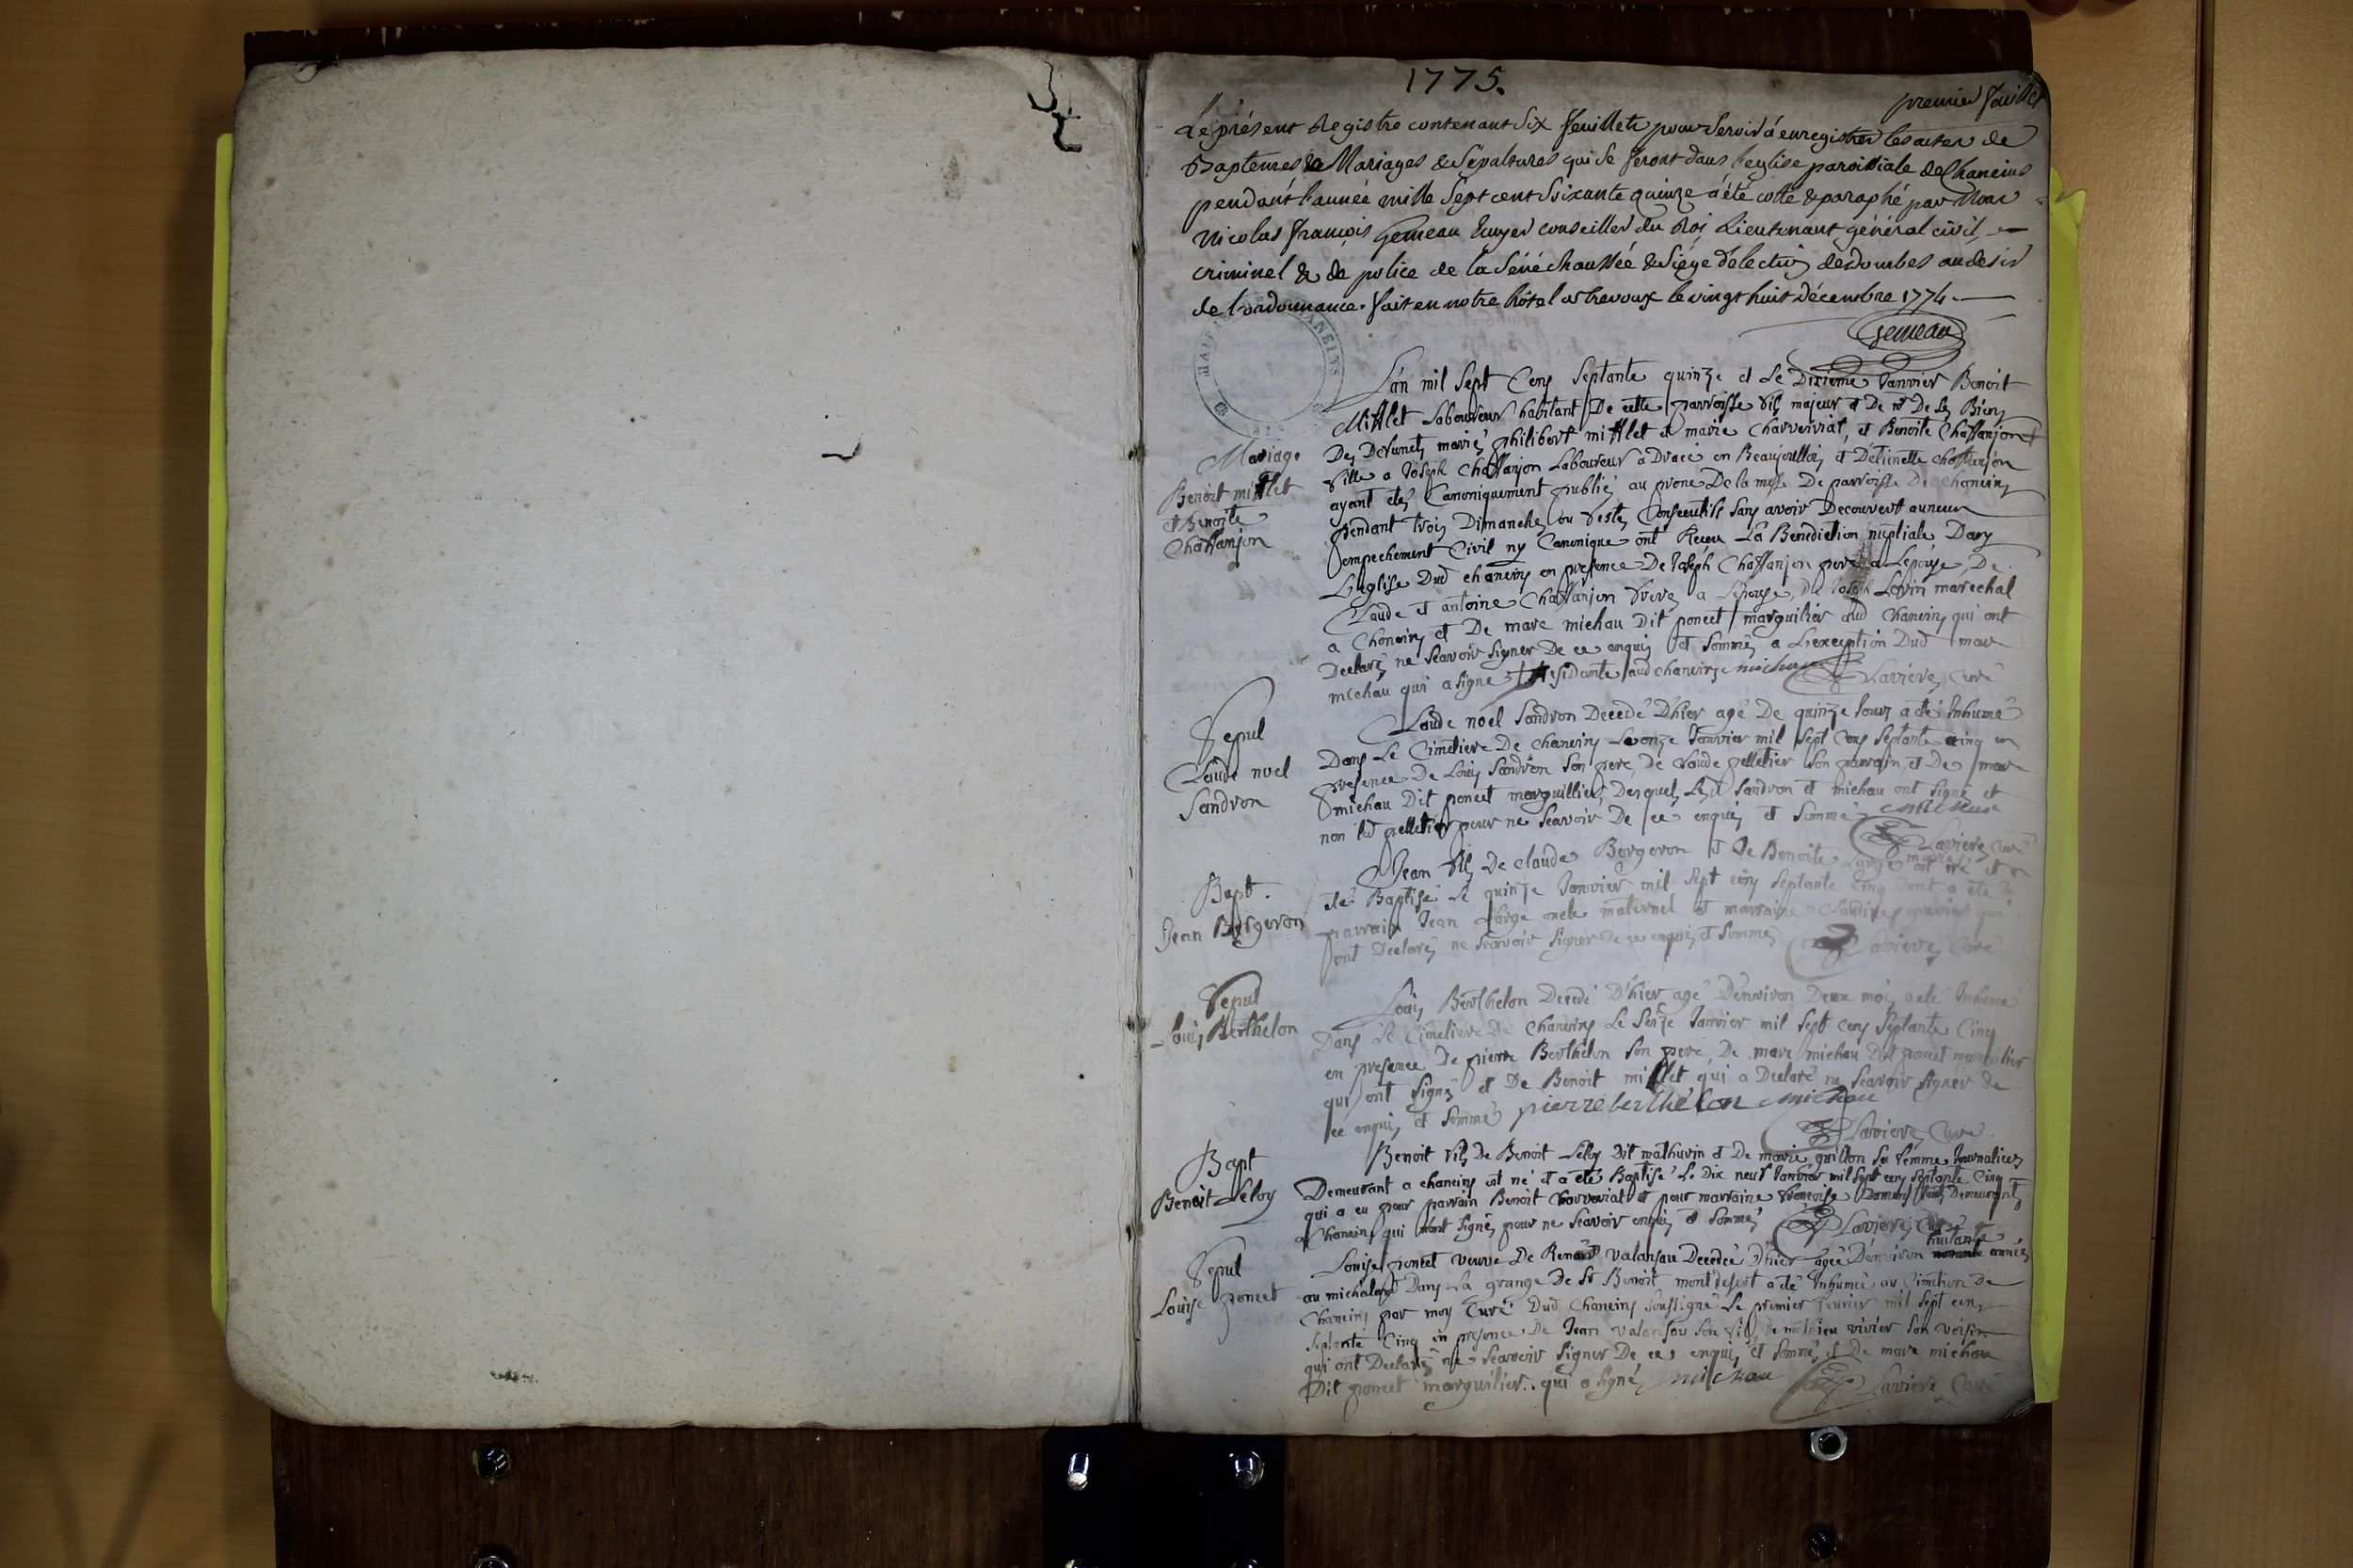 1775.
premier feuillet
Le présent Registre contenant Six feuillets pour Servir à enregistrer les actes de
Baptemes & Mariages & Sépultures qui Se feront dans l'eglise paroissiale de Chaneins
pendant l'année mille Sept cent Soixante quinze a été cotté & paraphé par Nous
Nicolas François Gemeau Ecuyer conseiller du Roi Lieutenant général civil
criminel & de police de la Sénéchaussée & Siége d'election de dombes au desir
de l'ordonnance. fait en notre hôtel a trevoux le vingt huit décembre 1774
Gemeau
Mariage
Benoit mifflet
et Benoite
Chaffanjon
L'an mil Sept Cens Septante quinze et Le Dixieme Janvier Benoit
Mifflet Laboureur habitant De cette parroisse fils majeur et De Bien
Des Defunts mariés philibert mifflet et marie Charveiriat, et Benoite Chaffanjon
fille a Joseph Chaffanjon Laboureur a Dracé en Beaujollois et D'etienette Chaffanjon
ayant etés Canoniquement publié au prone De la messe De parroisse De Chaneins
pendant trois Dimanches ou festes Consecutifs Sans avoir Decouvert aucun
empechement Civil ny Canonique ont Receu La Benediction nuptiale Dans
L'eglise Dud chaneins en presence De Joseph Chaffanjon pere a Lepouse, De
Claude et antoine Chaffanjon freres a Lepouse, De Joseph marechal
a Chaneins et De marc michau Dit poncet marguilier dud Chaneins qui ont
Declarés ne Scavoir Signer De ce enquis et Sommés a Lexception Dud marc
michau qui a Signé + Residante aud chaneins michau Laviere Curé
Sepul
Claude noel
Sandron
Claude noel Sandron Decedé D'hier agé De quinze Jours a eté Inhumé
Dans Le Cimetiere De Chaneins Le onze Janvier mil Sept Cens Septante cinq en
presence De Louis Sandron Son pere, de Claude pelletier Son parrain, et De marc
michau Dit poncet marguillier, Desquels Led Sandron et michau ont Signé et
non led pelletier pour ne Scavoir De ce enquis et Sommé michau
Laviere Curé
Bapt.
Jean Bergeron
Jean fils De claude Bergeron et De Benoite Large mariés est né et a
eté Baptisé Le quinze Janvier mil Sept cens Septante Cinq dont a eté
parrain Jean Large oncle maternel et marraine qui
ont Declarés ne Scavoir Signer de ce enquis et Sommés Laviere Curé
Sepul
Louis Berthelon
Louis Berthelon Decedé D'hier agé D'environ Deux mois a eté Inhumé
Dans Le Cimetiere De Chaneins Le Seize Janvier mil Sept Cens Septante Cinq
en presence De pierre Berthelon Son pere, De marc michau Dit poncet marguilier
qui ont Signés et De Benoit mifflet qui a Declaré ne Scavoir Signer De
ce enquis et Sommé pierre berthelon michau
Laviere Curé
Bapt
Benoit Leloy
Benoit fils De Benoit Leloy Dit mathurin et De marie guillon Sa femme Journaliers
Demeurant a chaneins est né et a eté Baptisé Le Dix neuf Janvier mil Sept cens Septante Cinq
qui a eu pour parrain Benoit Charveriat et pour marraine francoise Demeurants
a Chaneins qui n'ont Signés pour ne Scavoir enquis et Sommés Laviere Curé
Sepul
Louise poncet
Louise poncet veuve De Renaud valansau Decedée D'hier agée D'environ huitante années
au michalon Dans La grange De Sr Benoit montdesert a eté Inhumée au Cimetiere De
Chaneins par moy Curé Dud Chaneins Soussigné Le premier fevrier mil Sept cens
Septante Cinq en presence De Jean valansau Son fils De mathieu vivier Son voisin
qui ont Declarés ne Scavoir Signer De ce enquis et Sommés, et De marc michau
Dit poncet marguilier.. qui a Signé michau Laviere Curé